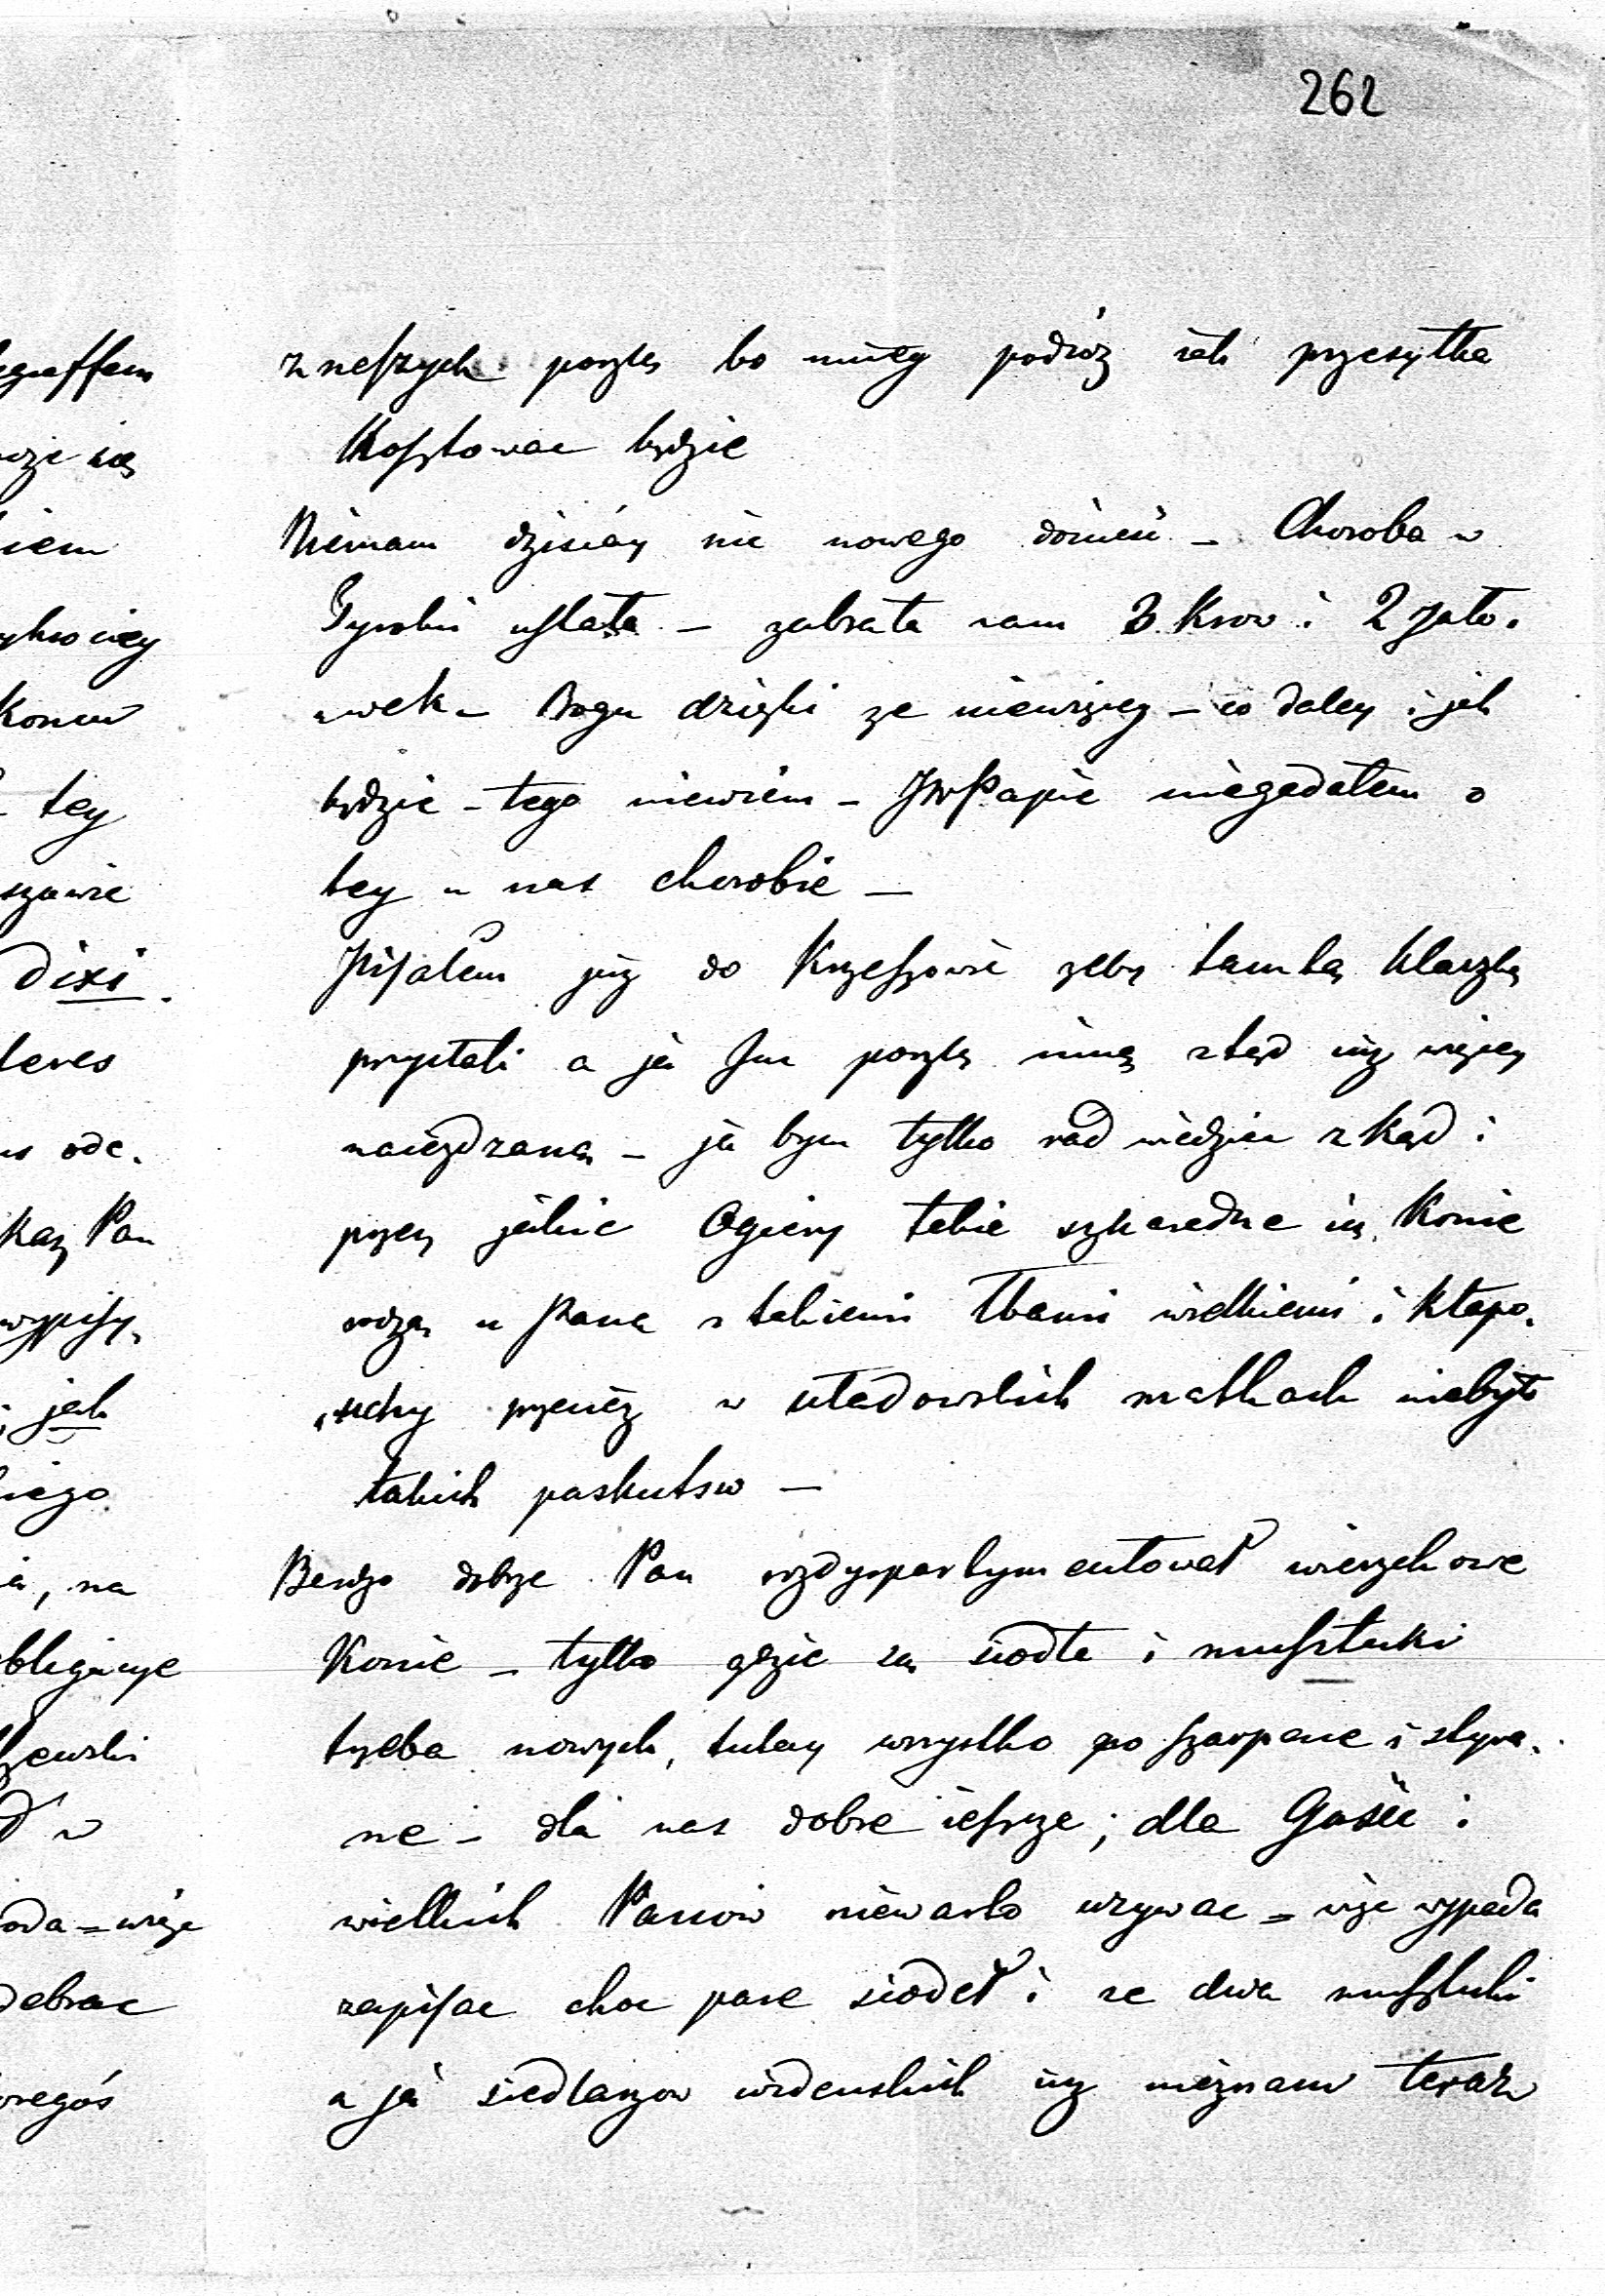 262
z naszych poszlę bo mniey podróż ich przesyłka
Kosztowac będzie
Niemam dzisiay nic nowego donieść – Choroba w
ustała – zabrała nam 3 Krow i 2 jało.
„wek – Bogu dzięki ze niewięcy – co daley i jak
będzie – tego niewiem – JWPapie niegadałem o
tey u nas chorobie –
Pisałem już do Krzeszowic zeby tamtą klaczkę
przysłali a ja Jm poszlę inną ztąd iuz więcey
naieżdzaną – ja bym tylko rad wiedziec zkąd i
przez jakie Ogiery takie szkaradne ię Konie
rodzą u Pana z takiemi łbami wielkiemi i kłapo.
„uchy przeciez w matkach niebyło
takich paskuctw –
Bardzo dobrze Pan rozdyspartymentował wierzchowe
Konie – tylko gdzie są siodła i musztuki
trzeba nowych, tutay wszystko poszarpane i styra.
ne – dla nas dobre ieszcze; dla Gości i
wielkich Panow niewarto uzywac = więc wypada
zapisac choc pare siodeł i ze dwa musztuki
a ja siedlarzow wiedenskich iuz nieznam teraz
graffem
się
iem
Konie
tey
szawie
dixi.
ode.
kaz Pan
wypisy.
jak
iego
a, na
bliguye
zewski
w
oda = więc
debrac
oregós